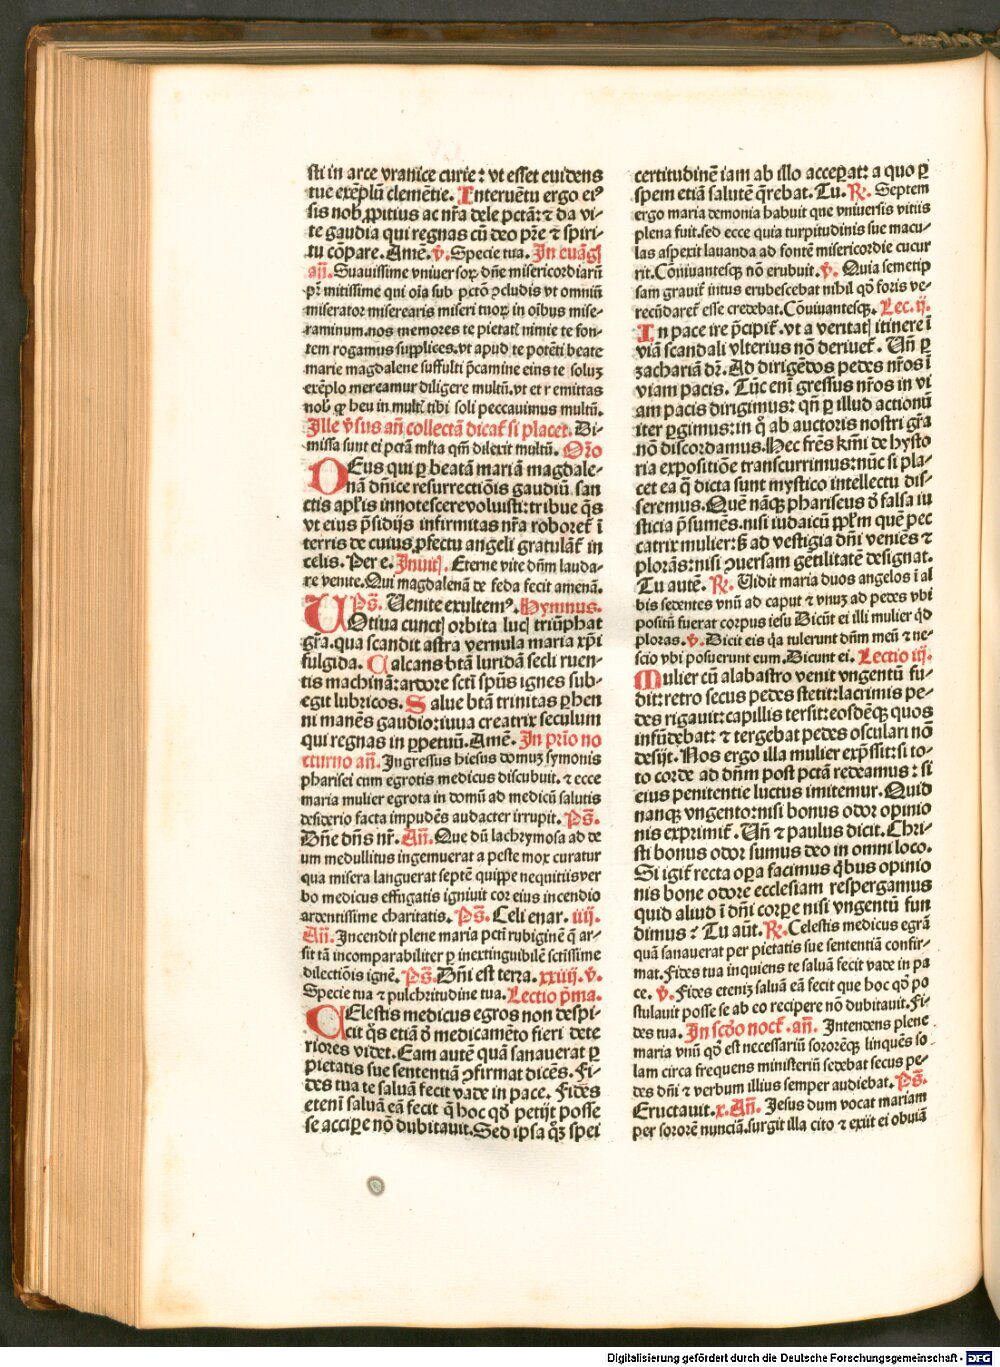 sti in arce vranice curie: vt esset euidens
tue exēplū clemētie. Interuētu ergo ei⁹
sis nob̄ ꝓpitius ac nr̄a dele pctā: ⁊ da vi-
te gaudia qui regnas cū deo pr̄e ⁊ spiri-
tu cōpare. Amē. ꝟ. Specie tua. In euāgl̄
añ. Suauissime vniuersoꝝ dn̄e misericordiarū
pr̄ mitissime qui oīa sub pctō ↄcludis vt omniū
miserator miserearis miseri tuoꝝ in oībus mise-
raminum. nos memores te pietatꝭ nimie te fon-
tem rogamus supplices. vt apud te potēti beate
marie magdalene suffulti p̄camine eius te soluꝫ
exēplo mereamur diligere multū. vt et remittas
nob̄ qꝛ heu in multꝭ tibi soli peccauimus multū.
Ille ꝟsus añ collectā dicat̄ si placet. Di-
missa sunt ei pctā ml̄ta qm̄ dilexit multū. Or̄o
DEus qui ꝑ beatā mariā magdale-
nā dn̄ice resurrectiōis gaudiū san
ctis apl̄is innotescere voluisti: tribue q̄s
vt eius p̄sidijs infirmitas nr̄a roboret̄ ī
terris de cuius ꝓfectu angeli gratulāt̄ in
celis. Per e. Inuitꝭ. Eterne vite dn̄m lauda-
re venite. Qui magdalenā de feda fecit amenā.
Ps̄. Uenite exultem⁹. Hymnus.
UOtiua cunctꝭ orbita lucꝭ triūphat
gr̄a. qua scandit astra vernula maria xp̄i
fulgida. Calcans btā luridam secli ruen-
tis machinā: ardore sctī sp̄us ignes sub-
egit lubricos. Salue btā trinitas ꝑhen
ni manēs gaudio: iuua creatrix seculum
qui regnas in ꝑpetuū. Amē. In prīo no
cturno añ. Ingressus hiesus domuꝫ symonis
pharisei cum egrotis medicus discubuit. ⁊ ecce
maria mulier egrota in domū ad medicū salutis
desiderio facta impudēs audacter irrupit. Ps̄.
Dn̄e dn̄s nr̄. Añ. Que dū lachrymosa ad de
um medullitus ingemuerat a peste mox curatur
qua misera languerat septē quippe nequitiis ver
bo medicus effugatis igniuit cor eius incendio
ardentissime charitatis. Ps̄. Celi enar. iiij.
Añ. Incendit plene maria pctī rubiginē q̄ ar-
sit tā incomparabiliter ꝑ inextinguibilē sctissime
dilectiōis ignē. Ps̄. Dn̄i est terra. xxiij. ꝟ.
Specie tua ⁊ pulchritudine tua. Lectio p̄ma.
CElestis medicus egros non despi-
cit q̄s etiā ꝺ̄ medicamēto fieri dete
riores videt. Eam autē quā sanauerat ꝑ
pietatis sue sententiā ↄfirmat dicēs. Fi-
des tua te saluā fecit vade in pace. Fides
etenī saluā eā fecit q̄ hoc qd̄ petijt posse
se accipe nō dubitauit. Sed ipsa qꝫ spei
certitudinē iam ab illo acceꝑat: a quo ꝑ
spem etiā salutē q̄rebat. Tu. ℟. Septem
ergo maria demonia habuit que vniuersis vitiis
plena fuit. sed ecce quia turpitudinis sue macu-
las aspexit lauanda ad fontē misericordie cucur
rit. Cōuiuantesqꝫ nō erubuit. ꝟ. Quia semetip
sam grauit̄ intus erubescebat nihil qd̄ foris ve-
recūdaret̄ esse credebat. Cōuiuantesqꝫ. Lec. ij.
In pace ire p̄cipit̄. vt a veritatꝭ itinere ī
viā scandali vlterius nō deriuet̄. Un̄ ꝑ
zachariā dr̄. Ad dirigēdos pedes nr̄os ī
viam pacis. Tūc enī gressus nr̄os in vi
am pacis dirigimus: qn̄ ꝑ illud actionū
iter ꝑgimus: in q̄ ab auctoris nostri gr̄a
nō discordamus. Hec frēs kr̄mi de hysto
ria expositiōe transcurrimus: nūc si pla-
cet ea q̄ dicta sunt mystico intellectu dis-
seremus. Quē nāqꝫ phariseus ꝺ̄ falsa iu
sticia p̄sumēs. nisi iudaicū ppl̄m quē pec
catrix mulier: ꝫ ad vestigia dn̄i veniēs ⁊
plorās: nisi ↄuersam gētilitatē designat.
Tu autē. ℟. Uidit maria duos angelos ī al
bis sedentes vnū ad caput ⁊ vnuꝫ ad pedes vbi
positū fuerat corpus iesu Dicūt ei illi mulier qd̄
ploras. ꝟ. Dicit eis q̄a tulerunt dn̄m meū ⁊ ne-
scio vbi posuerunt eum. Dicunt ei. Lectio iij.
Mulier cū alabastro venit vngentū fu-
dit: retro secus pedes stetit: lacrimis pe-
des rigauit: capillis tersit: eosdēqꝫ quos
infūdebat: ⁊ tergebat pedes osculari nō
desijt. Nos ergo illa mulier exp̄ssit: si to-
to corde ad dn̄m post pctā redeamus: si
eius penitentie luctus imitemur. Quid
nanqꝫ vngento: nisi bonus odor opinio
nis exprimit̄. Un̄ ⁊ paulus dicit. Chri-
sti bonus odor sumus deo in omni loco.
Si igit̄ recta oꝑa facimus qͥbus opinio
nis bone odore ecclesiam respergamus
quid aliud ī dn̄i corꝑe nisi vngentū fun
dimus? Tu aūt. ℟. Celestis medicus egrā
quā sanauerat per pietatis sue sententiā confir-
mat. Fides tua inquiens te saluā fecit vade in pa
ce. ꝟ. Fides eteniꝫ saluā eā fecit que hoc qd̄ po
stulauit posse se ab eo recipere nō dubitauit. Fi-
des tua. In scd̄o noct̄. añ. Intendens plene
maria vnū qd̄ est necessariū sororēqꝫ linquēs so
lam circa frequens ministeriū sedebat secus pe-
des dn̄i ⁊ verbum illius semper audiebat. Ps̄.
Eructauit. x. Añ. Jesus dum vocat mariam
per sororē nunciā. surgit illa cito ⁊ exiit ei obuiā
Digitalisierung gefördert durch die Deutsche Forschungsgemeinschaft - DFG